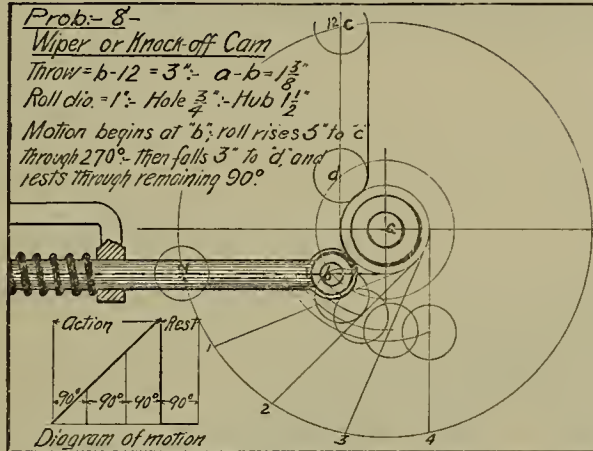 Prob:- 8-
Wiper or Knock-off Cam
Throw = b-12 = 3":- a-b = 1 3/8"
Roll dia. = 1":- Hole 3/4":- Hub 1 1/2"
Motion begins at "b"; roll rises 3" to "c"
through 270°- then falls 3" to "d", and
rests through remaining 90°.
12 c
d
a
b
Action Rest
90° 90° 90° 90°
1
2
3
4
Diagram of motion